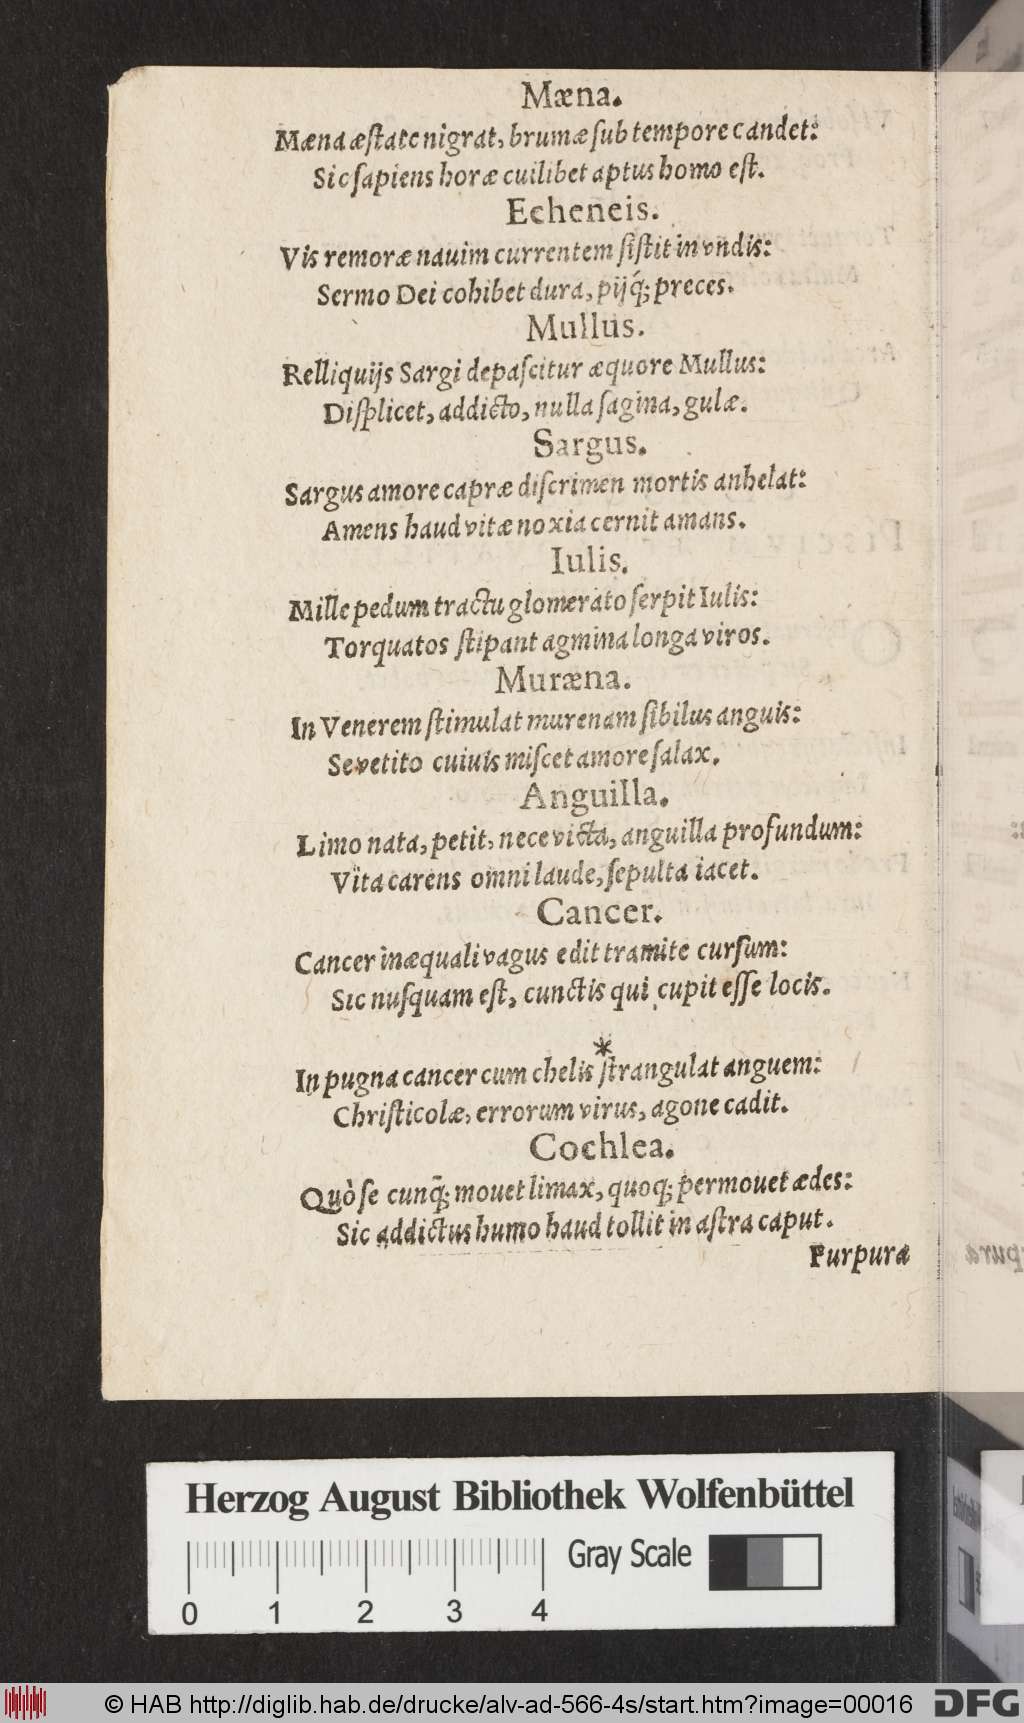 Mæna.
Mæna æſtate nigrat, brumæ ſub tempore candet:
Sic ſapiens horæ cuilibet aptus homo eſt.
Echeneis.
Vis remoræ nauim currentem ſiſtit in vndis:
Sermo Dei cohibet dura, pijq́; preces.
Mullus.
Relliquijs Sargi depaſcitur æquore Mullus:
Diſplicet, addicto, nulla ſagina, gulæ.
Sargus.
Sargus amore capræ diſcrimen mortis anhelat:
Amens haud vitæ noxia cernit amans.
Iulis.
Mille pedum tractu glomerato ſerpit Iulis:
Torquatos ſtipant agmina longa viros.
Muræna.
In Venerem ſtimulat murenam ſibilus anguis:
Se vetito cuiuis miſcet amore ſalax.
Anguilla.
Limo nata, petit, nece victa, anguilla profundum:
Vita carens omni laude, ſepulta iacet.
Cancer.
Cancer inæquali vagus edit tramite curſum:
Sic nuſquam eſt, cunctis qui cupit eſſe locis.
*
In pugna cancer cum chelis ſtrangulat anguem:
Chriſticolæ, errorum virus, agone cadit.
Cochlea.
Quò ſe cunq̃; mouet limax, quoq; permouet ædes:
Sic addictus humo haud tollit in aſtra caput.
Purpura
Herzog August Bibliothek Wolfenbüttel
Gray Scale
0 1 2 3 4
© HAB http://diglib.hab.de/drucke/alv-ad-566-4s/start.htm?image=00016
DFG